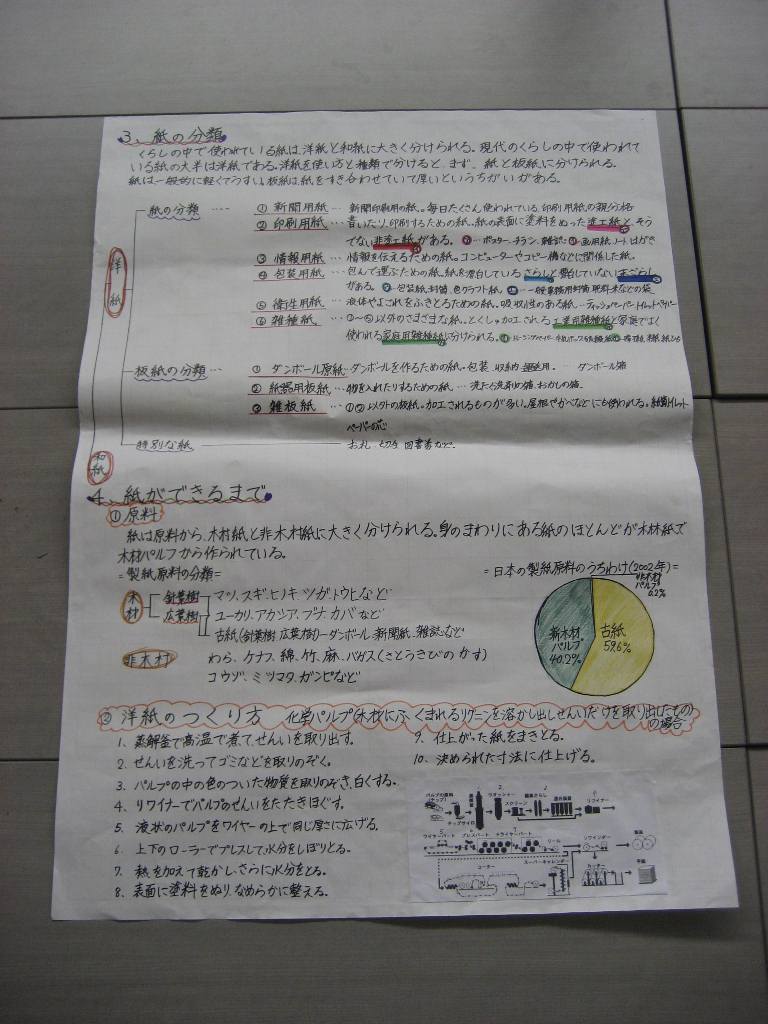 3、紙の分類
くらしの中で使われている紙は、洋紙と和紙に大きく分けられる。現代のくらしの中で使われて
いる紙の大半は洋紙である。洋紙を使い方と種類で分けると、まず、紙と板紙に分けられる。
紙は一般的に軽くてうすい。板紙は、紙をすき合わせていて厚いというちがいがある。
洋紙
紙の分類
① 新聞用紙 … 新聞印刷用の紙。毎日たくさん使われている
② 印刷用紙 … 書いたり、印刷するための紙。紙の表面に塗料をぬった塗工紙と、そう
でない非塗工紙がある。
③ 情報用紙 … 情報を伝えるための紙。コンピューターやコピー機などに関係した紙。
④ 包装用紙 … 包んで運ぶための紙。紙を漂白しているさらしと漂白していない
がある。
⑤ 衛生用紙 … 液体やよごれをふきとるための紙。吸収性のある紙
⑥ 雑種紙 … ①～⑤以外のさまざまな紙。とくしゅ加工される工業用雑種紙と家庭でよく
使われる家庭用雑種紙に分けられる。
板紙の分類 …
① ダンボール原紙 … ダンボールを作るための紙。包装 ダンボール箱
② 紙器用板紙 … 物を入れたりするための紙。… おかしの箱。
③ 雑板紙 … ①②以外の板紙。加工されるものが多い。屋根やかべなどにも使われる。
ペーパーの芯
特別な紙 お札 切手 図書券など。
和紙
4、紙ができるまで
① 原料
紙は原料から、木材紙と非木材紙に大きく分けられる。身のまわりにある紙のほとんどが木材紙で
木材パルプから作られている。
=製紙原料の分類=
木材
針葉樹 マツ、スギ、ヒノキ、ツガ、トウヒなど
広葉樹 ユーカリ、アカシア、ブナ、カバなど
古紙(針葉樹、広葉樹)-ダンボール、新聞紙、雑誌など
非木材 わら、ケナフ、綿、竹、麻、バガス(さとうきびのかす)
コウゾ、ミツマタ、ガンピなど
=日本の製紙原料のうちわけ(2002年)=
非木材パルプ 0.2%
新木材パルプ 40.2%
古紙 59.6%
② 洋紙のつくり方 化学パルプ(木材にふくまれるリグニンを溶かし出しせんいだけを取り出したもの)
の場合
1. 蒸解釜で高温で煮て、せんいを取り出す。
2. せんいを洗ってゴミなどを取りのぞく。
3. パルプの中の色のついた物質を取りのぞき、白くする。
4. リファイナーでパルプのせんいをたたきほぐす。
5. 液状のパルプをワイヤーの上で同じ厚さに広げる。
6. 上下のローラーでプレスして、水分をしぼりとる。
7. 熱を加えて乾かし、さらに水分をとる。
8. 表面に塗料をぬり、なめらかに整える。
9. 仕上がった紙をまきとる。
10. 決められた寸法に仕上げる。
パルプの原料
(チップ)
チップサイロ
スクリーン
リファイナー
ワイヤーパート
プレスパート
ドライヤーパート
リール
コーター
スーパーキャレンダー
ワインダー
カッター